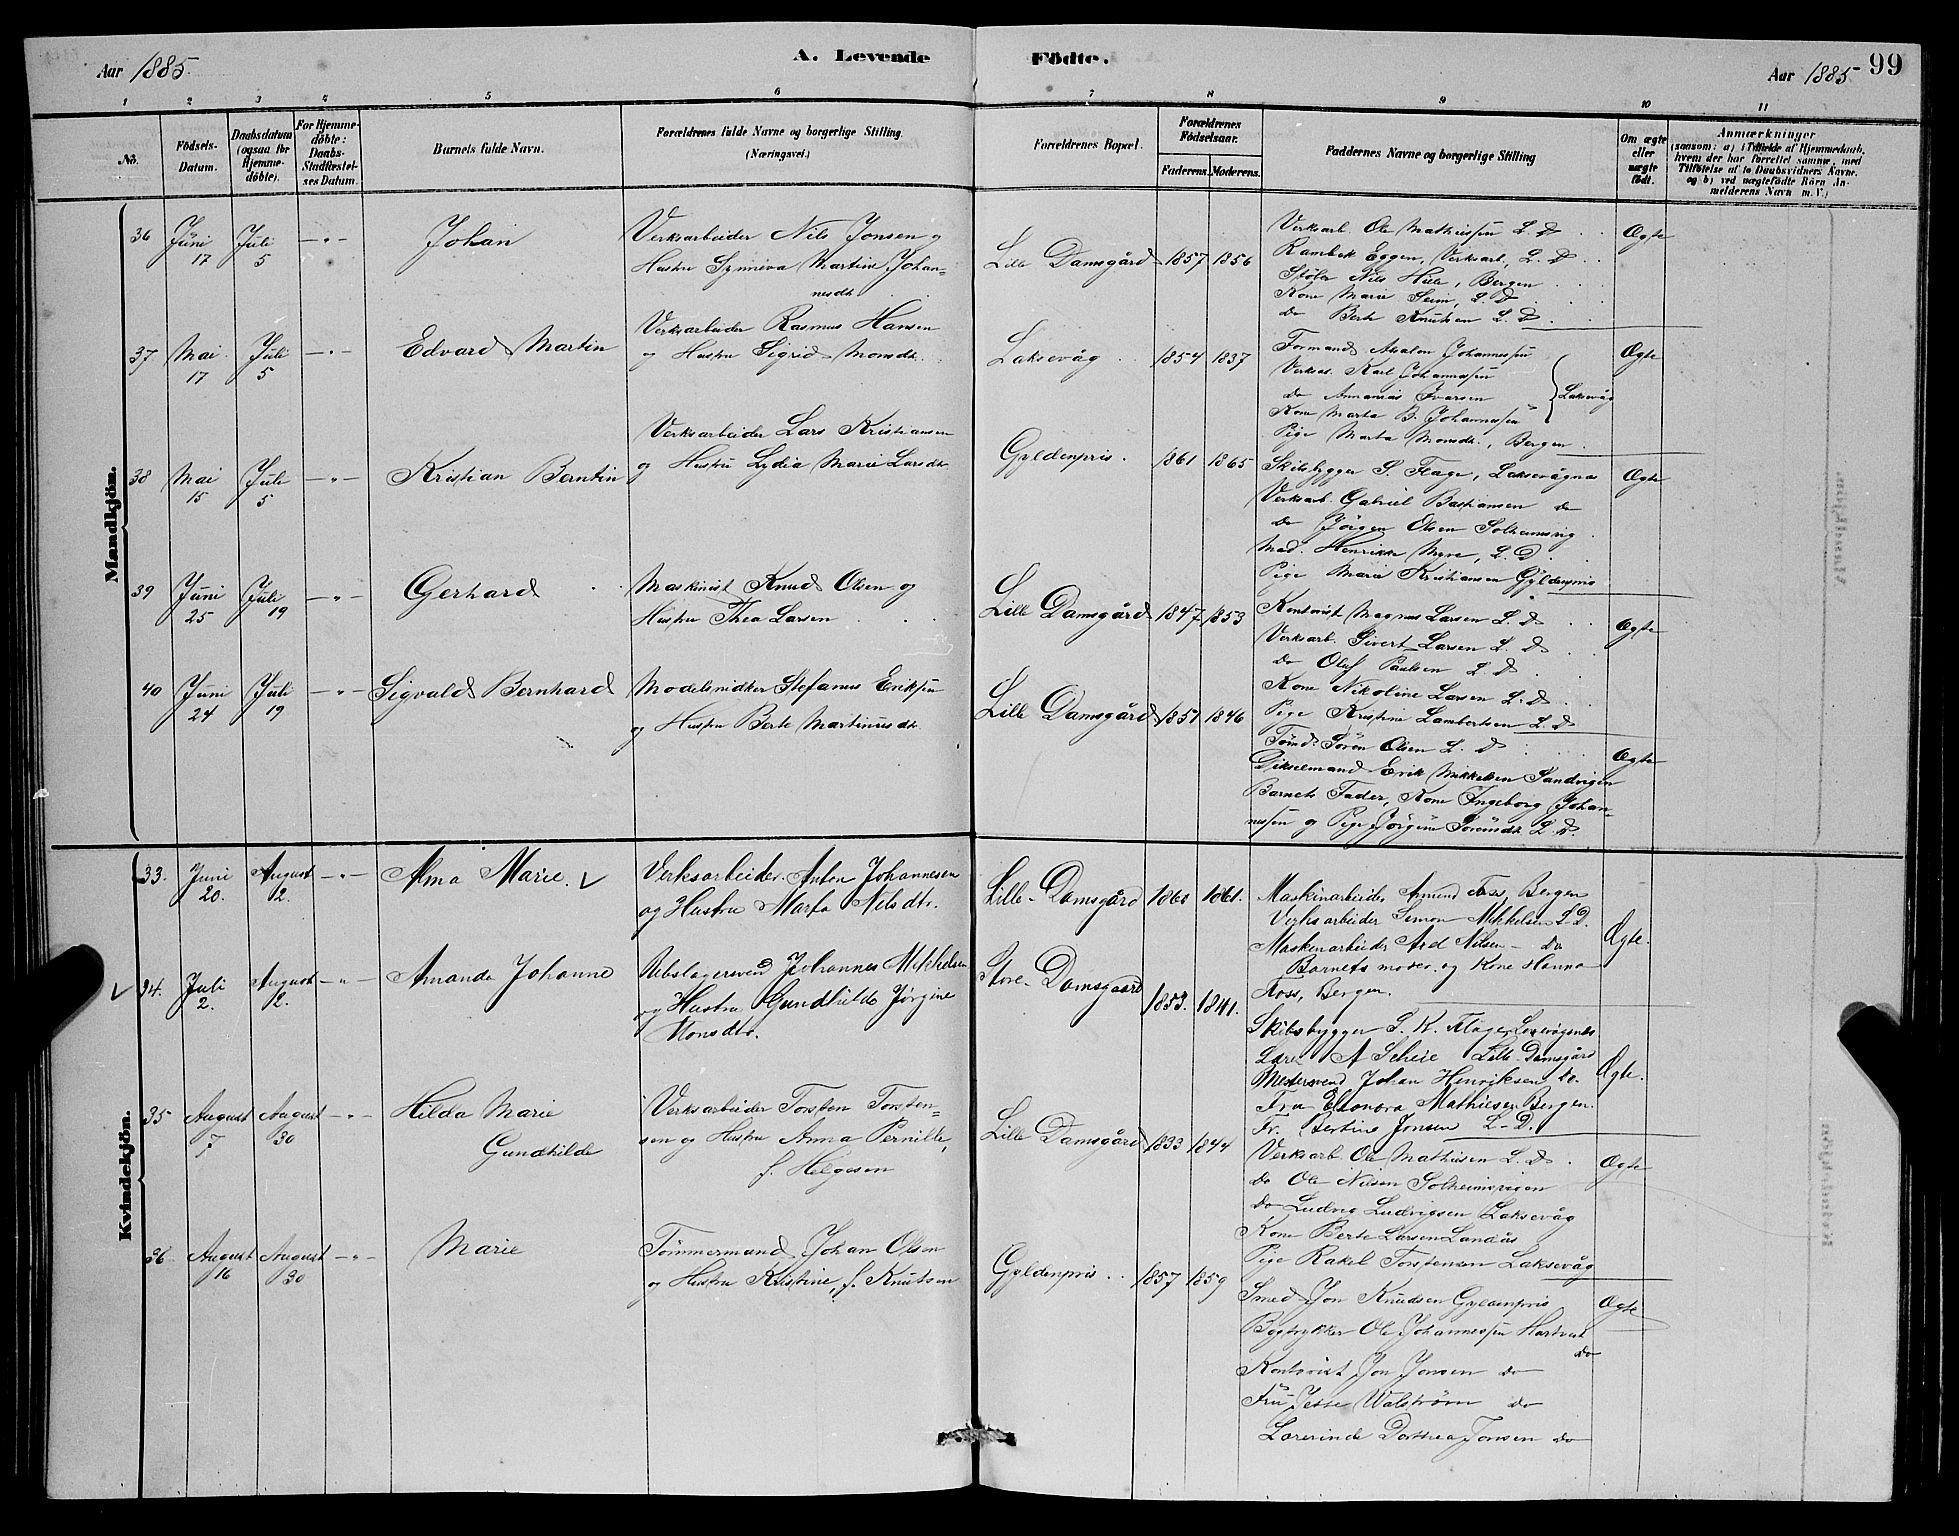 Aar 1885.
A. Levende Födte.
Aar 1885
99
1 2 3 4 5 6 7 8 9 10 11
No.
Födsels-Datum.
Daabsdatum (ogsaa for Hjemme-döbte).
For Hjemme-döbte: Daabs-Stadfæstel-ses Datum.
Barnets fulde Navn.
Forældrenes fulde Navne og borgerlige Stilling. (Næringsvei.)
Forældrenes Bopæl.
Forældrenes Födselsaar.
Faderens. Moderens.
Faddernes Navne og borgerlige Stilling
Om ægte eller uægte født.
Anmærkninger
(saasom: a) i Tilfælde af Hjemmedaab, hvem der har forrettet samme, med Tilföielse af to Daabsvidners Navne, og b) ved uægtefödte Börn Anmelderens Navn m. V.)
Mandkjön.
36 Juni 17 Juli 5 — " — Johan
Verksarbeider Nils Jonsen og
Hustru Synneva Martine Johan-
nesdtr
Lille Damsgård 1857 1856
Verksarb. Ole Mathiessen L. D.
Rambek Eggen, Verksarb. L. D.
Støber Nils Hile, Bergen
Kone Marie Seim, L. D.
do Berte Knutsen L. D.
Ægte
37 Mai 17 Juli 5 — " — Edvard Martin
Verksarbeider Rasmus Hansen
og Hustru Sigrid Monsdtr.
Laksevåg 1854 1837
Formand Absalon Johannessen
Verksar. Karl Johannessen
do Annanias Ivarsen
Kone Marta B. Johannessen
Laksevåg
Pige Marta Monsdtr., Bergen
Ægte
38 Mai 15 Juli 5 — " — Kristian Berntin
Verksarbeider Lars Kristiansen
og Hustru Lydia Marie Larsdtr
Gyldenpris. 1861 1865
Skibsbygger S. Flage, Laksevågnes
Verksarb. Gabriel Bastiansen do
do Jörgen Olsen Solheimsvig
Mad. Henrikke Myre, L. D.
Pige Marie Kristiansen Gyldenpris
Ægte
39 Juni 25 Juli 19 — " — Gerhard
Maskinist Knud Olsen og
Hustru Thea Larsen
Lille Damsgård 1847 1853
Kontorist Magnus Larsen L. D
Verksarb. Sivert Larsen L. D
do Oluf Paulsen L. D
Kone Nikoline Larsen L. D
Pige Kristine Lambertsen L. D
Ægte
40 Juni 24 Juli 19 — " — Sigvald Bernhard
Modelsnidker Stefanus Eriksen
og Hustru Berte Martinusdtr
Lille Damsgård 1851 1846
Tömd. Sörön Olsen L. D
Dikselmand Erik Mikkelsen Sandvigen
Barnets Fader, Kone Ingeborg Johan-
nessen og Pige Jörgine Sörensdtr L. D.
Ægte
Kvindekjön.
33. Juni 20. August 2. — " — Alma Marie. V
Verksarbeider Anton Johannesen
og Hustru Marta Nilsdtr.
Lille-Damsgård 1860 1861.
Maskinarbeider Amund Foss, Bergen
Verksarbeider Simon Mikkelsen L. D.
Maskinarbeider Ard Nilsen — do
Barnets moder. og Kone Hanna
Foss, Bergen.
Ægte.
V 34. Juli 2. August 2. — " — Amanda Johanne
Rebslagersvend Johannes Mikkelsen
og Hustru Gundhilde Jørgine
Monsdtr.
Store-Damsgaard 1853. 1841.
Skibsbygger S. K. Flage, Laxevågsnes
Lærer A Scheie Lille-Damsgård
Mestersvend Johan Henriksen do.
Fru Eleonora Mathiesen Bergen.
Fr. Bertine Jonsen L. D.
Ægte.
35 August 7 August 30 — " — Hilda Marie
Gundhilde
Verksarbeider Torsten Torsten-
sen og Hustru Anna Pernille,
f. Helgesen
Lille Damsgård 1833 1844
Verksarb. Ole Mathisen L. D.
do Ole Nilsen Solheimsvigen
do Ludvig Ludvigsen Laksevåg
Kone Berte Larsen Landås
Pige Rakel Torstensen Laksevåg
Ægte
36 August 16 August 30 — " — Marie
Tömmermand Johan Olsen
og Hustru Kristine, f. Knutsen
Gyldenpris.. 1857 1859
Smed Jon Knudsen Gyldenpris
Bogtrykker Ole Johannessen
do
Kontorist Jon Jonsen do
Fru Jesse Walström do
Lærerinde Dorthea Jonsen do
Ægte